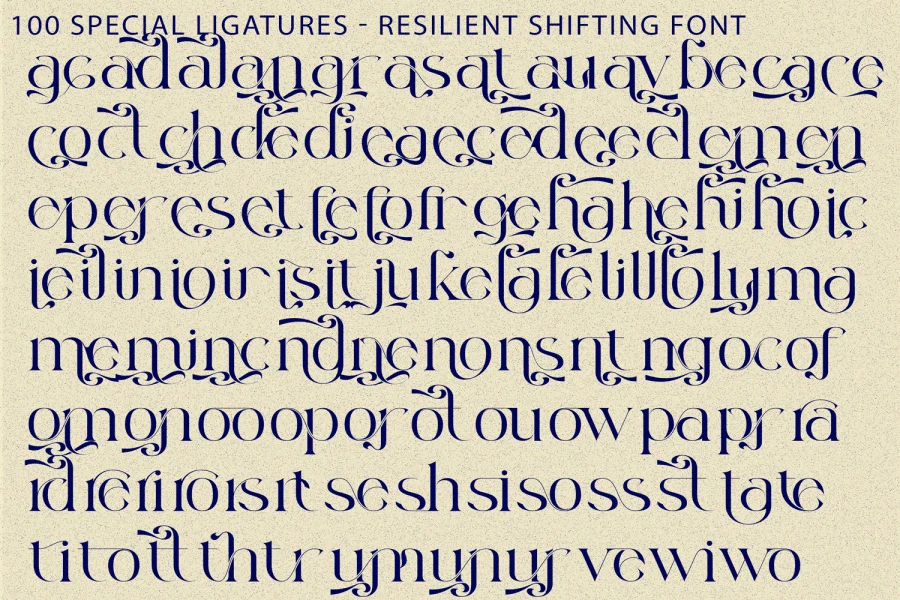 100 SPECIAL LIGATURES - RESILIENT SHIFTING FONT
ac ad al an ar as at au av be ca ce
co ct ch de di ea ec ed ee el em en
ep er es et fe fo fr ge ha he hi ho ic
ie il in io ir is it ju ke la le li ll lo ly ma
me mi nc nd ne no ns nt ng oc of
om on oo op or ot ou ow pa pr ra
rd re ri ro rs rt se sh si so ss st ta te
ti to tt th tr um un ur ve wi wo